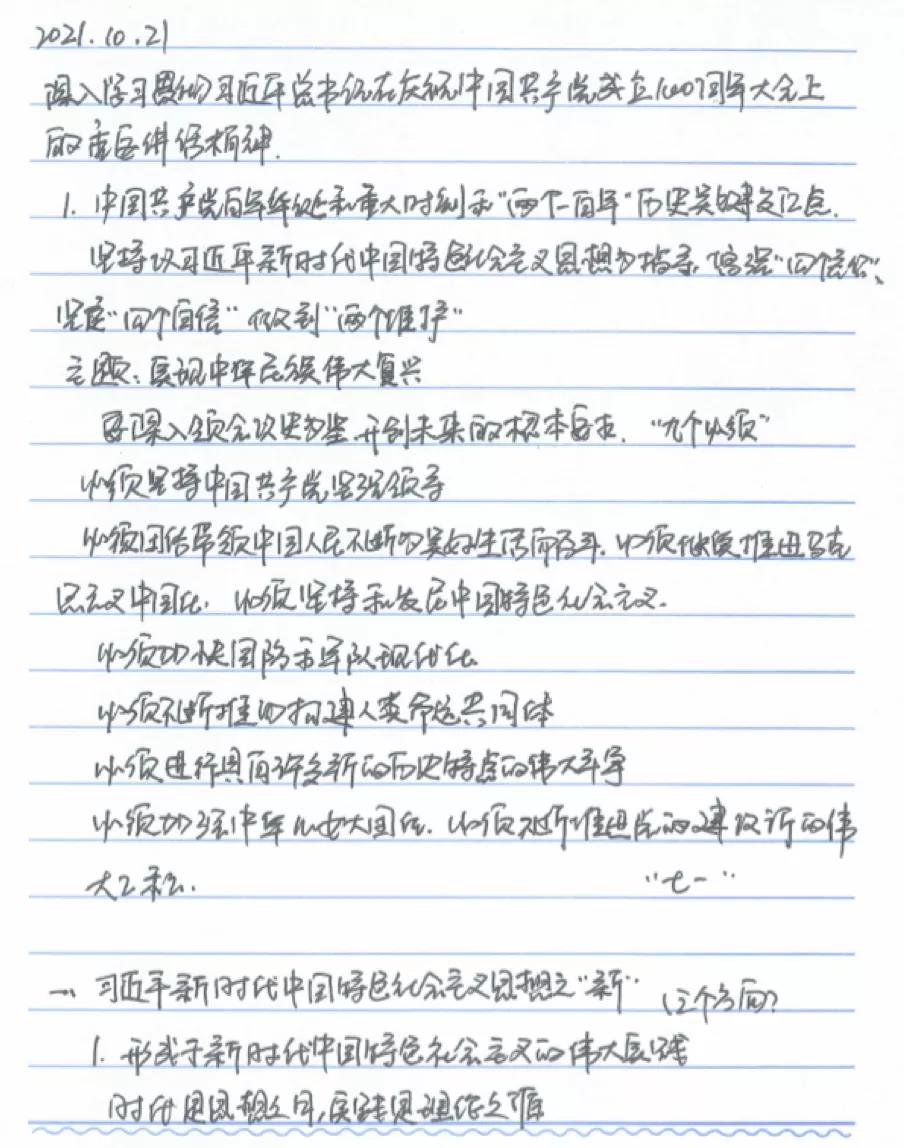 2021.10.21
深入学习贯彻习近平总书记在庆祝中国共产党成立100周年大会上
的重要讲话精神.
1. 中国共产党百年华诞和重大时刻和"两个一百年"历史关键交汇点.
坚持以习近平新时代中国特色社会主义思想为指导,增强"四个意识",
坚定"四个自信" 做到"两个维护"
主题:实现中华民族伟大复兴
要深入领会以史为鉴,开创未来的根本要求. "九个必须"
必须坚持中国共产党坚强领导
必须团结带领中国人民不断为美好生活而奋斗. 必须继续推进马克
思主义中国化. 必须坚持和发展中国特色社会主义.
必须加快国防和军队现代化
必须不断推动构建人类命运共同体
必须进行具有许多新的历史特点的伟大斗争
必须加强中华儿女大团结. 必须不断推进党的建设新的伟
大工程. "七一"
一、习近平新时代中国特色社会主义思想之"新" (三个方面?
1. 形成于新时代中国特色社会主义的伟大实践
时代是思想之母,实践是理论之源